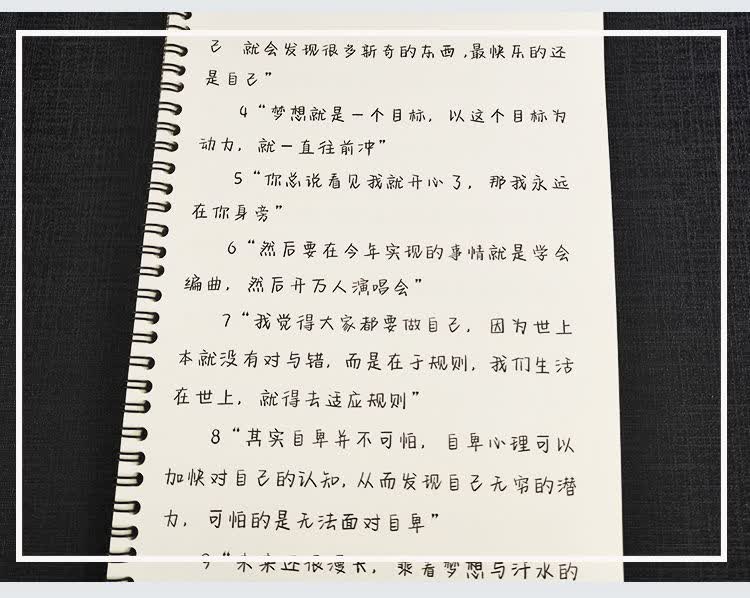 己 就会发现很多新奇的东西,最快乐的还
是自己”
4“梦想就是一个目标，以这个目标为
动力，就一直往前冲”
5“你总说看见我就开心了，那我永远
在你身旁”
6“然后要在今年实现的事情就是学会
编曲，然后开万人演唱会”
7“我觉得大家都要做自己，因为世上
本就没有对与错，而是在于规则，我们生活
在世上，就得去适应规则”
8“其实自卑并不可怕，自卑心理可以
加快对自己的认知，从而发现自己无穷的潜
力，可怕的是无法面对自卑”
9“未来还很漫长，乘着梦想与汗水的